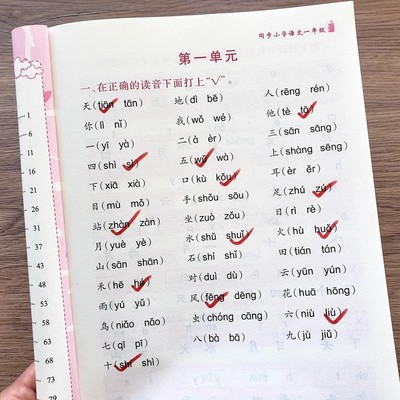 同步小学语文一年级
第一单元
一、在正确的读音下面打上“√”。
天(tiān tān) 地(dì bē) 人(rēng rén)
你(lì nǐ) 我(wǒ wé) 他(tè tā)
一(yī yà) 二(à èr) 三(sān sāng)
四(shì sì) 五(wǔ wà) 上(shàng sēng)
下(xiā xià) 口(kù kǒu) 耳(èr ěr)
目(mù mǒ) 手(shǒu sōu) 足(zhú zú)
站(zhàn zàn) 坐(zuò zǒu) 日(rì rè)
月(yuè yè) 水(shǔ shuǐ) 火(hù huǒ)
山(sān shān) 石(shí sǐ) 田(tián tán)
禾(hē hé) 对(duì dù) 云(yún yún)
雨(yú yǔ) 风(fēng dēng) 花(huā hōng)
鸟(niǎo nǎo) 虫(chóng cāng) 六(niù liù)
七(qī pī) 八(bà bā) 九(jù jiǔ)
十(shí shì)
1
7
13
19
25
31
37
43
48
53
58
63
68
73
79